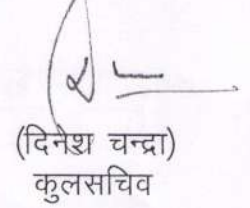 (दिनेश चन्द्रा)
कुलसचिव